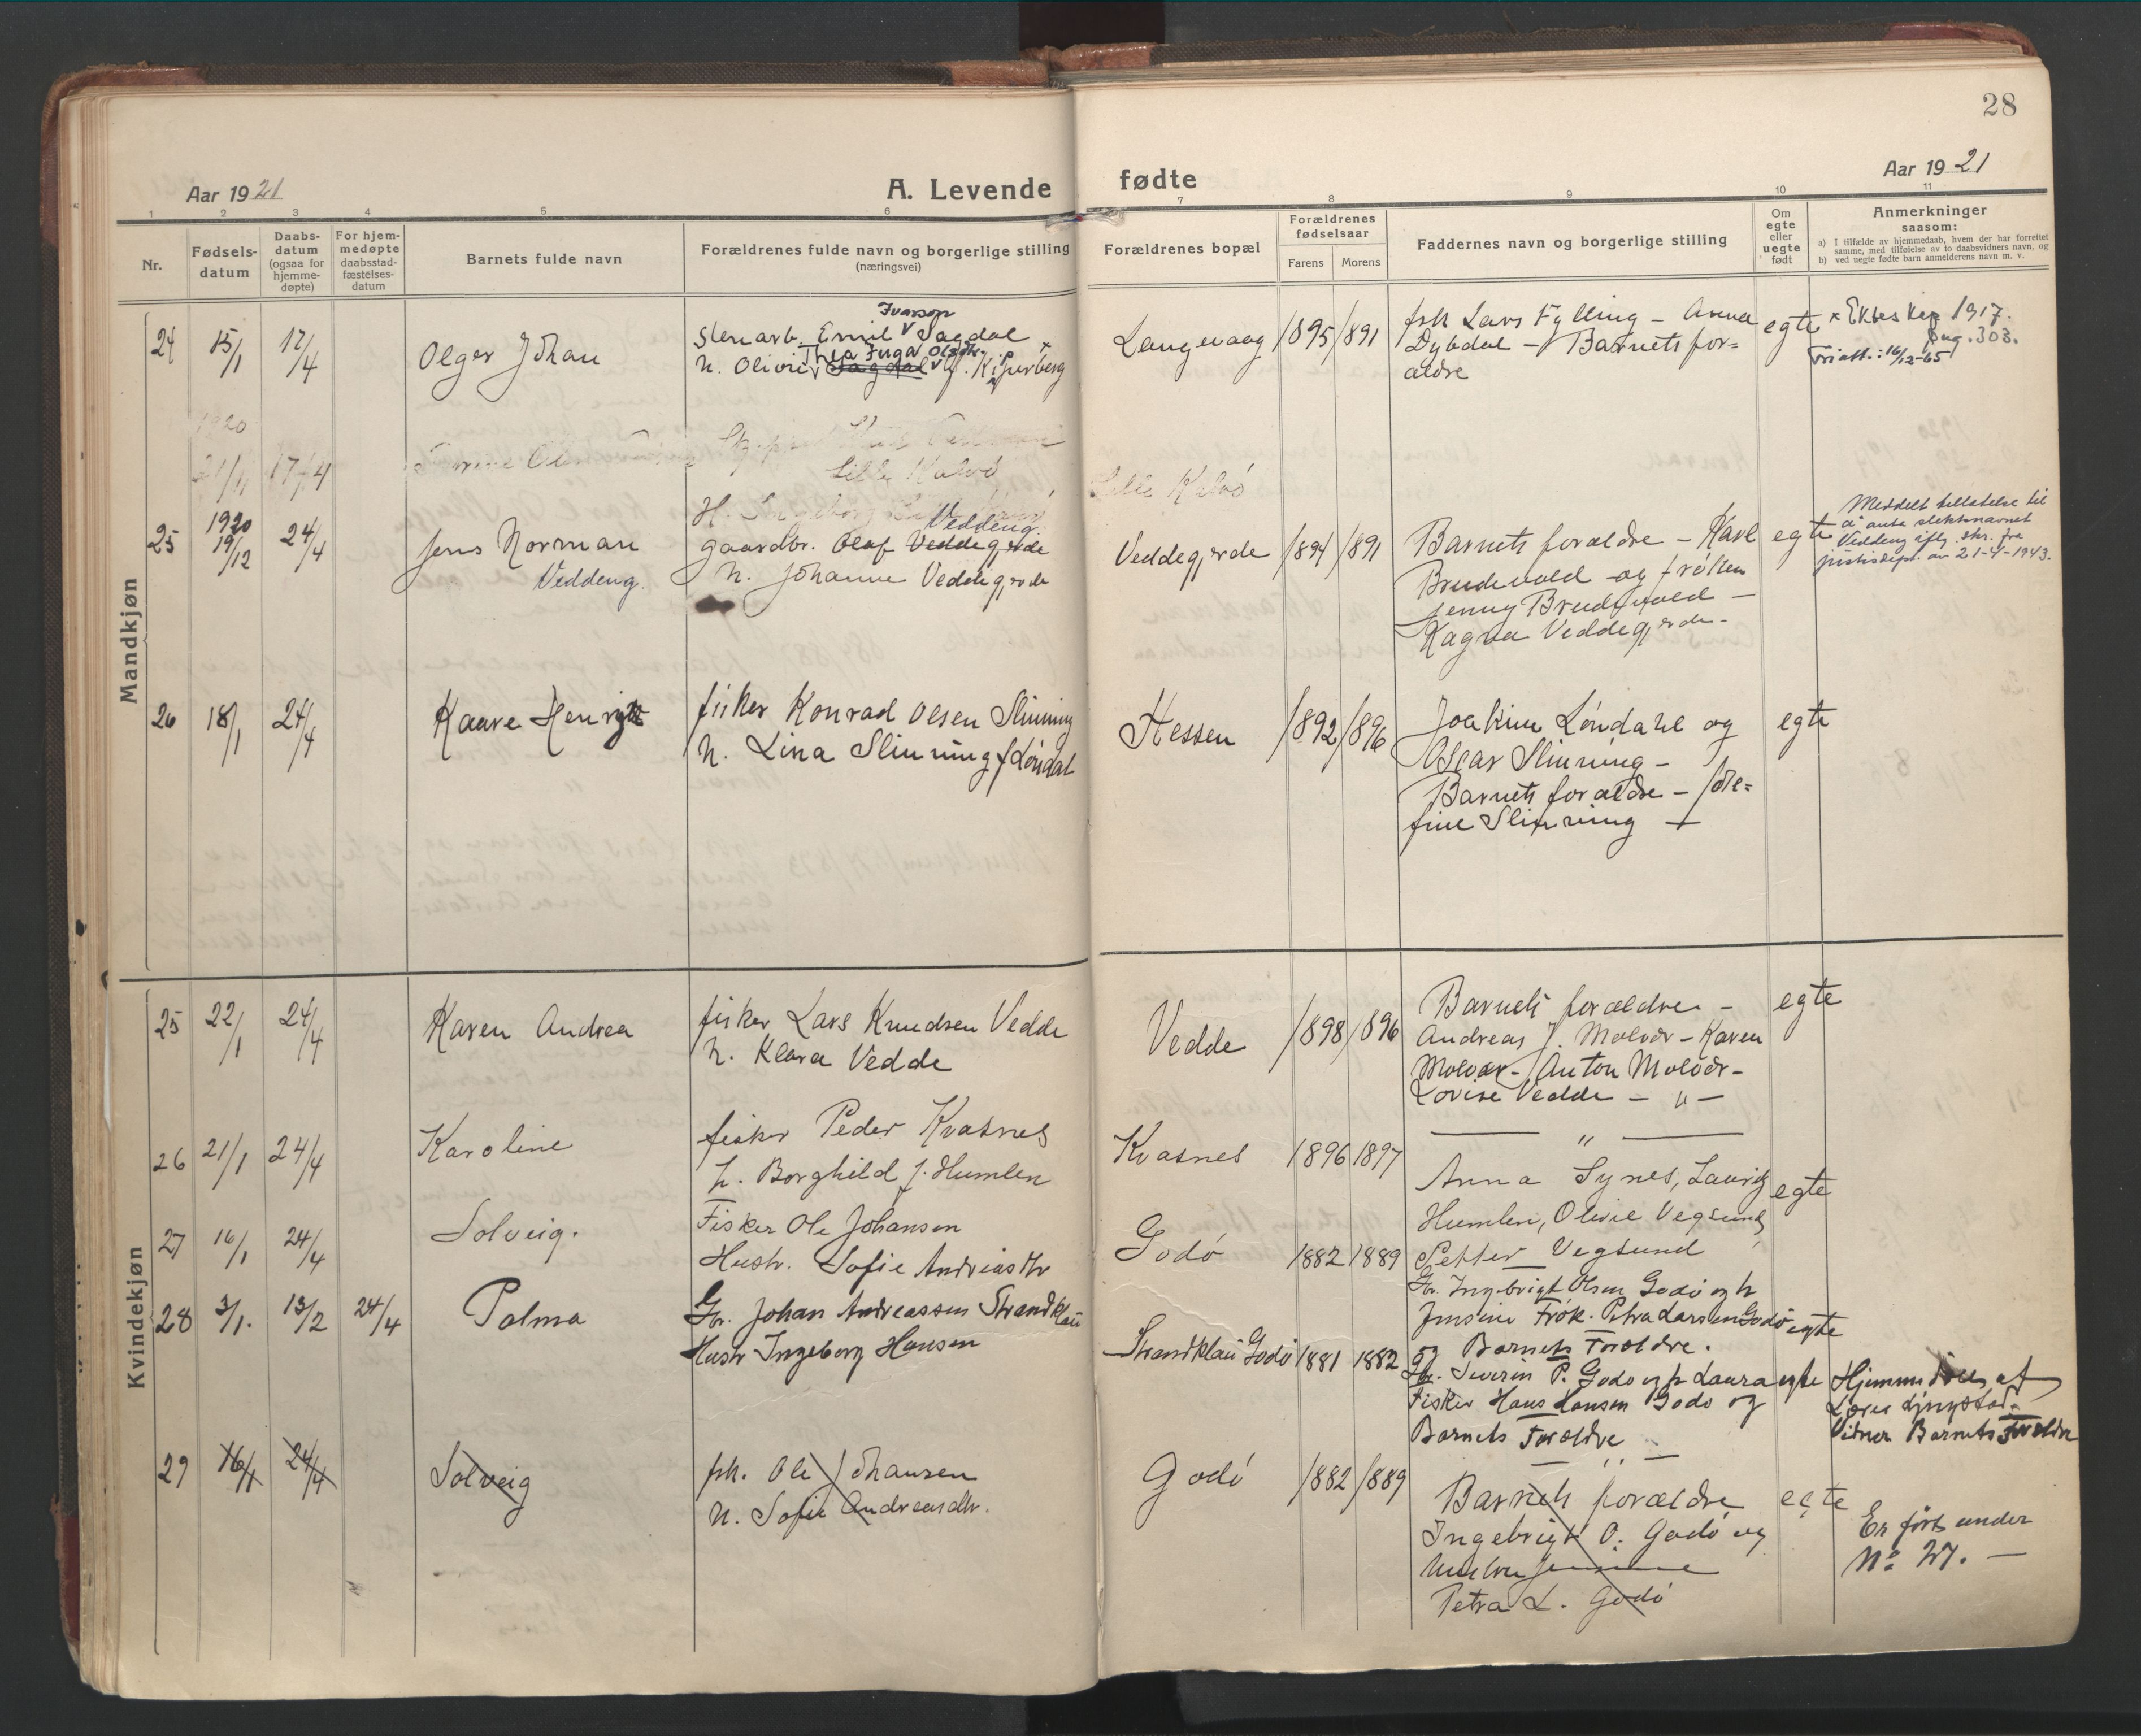 28
Aar 1921
A. Levende
fødte
Aar 1921
1 2 3 4 5 6 7 8 9 10 11
Nr.
Fødsels-
datum
Daabs-
datum
(ogsaa for
hjemme-
døpte)
For hjem-
medøpte
daabsstad-
fæstelses-
datum
Barnets fulde navn
Forældrenes fulde navn og borgerlige stilling
(næringsvei)
Forældrenes bopæl
Forældrenes
fødselsaar
Farens
Morens
Faddernes navn og borgerlige stilling
Om
egte
eller
uegte
født
Anmerkninger
saasom:
a) I tilfælde av hjemmedaab, hvem der har forrettet
samme, med tilføielse av to daabsvidners navn, og
b) ved uegte fødte barn anmelderens navn m. v.
Mandkjøn
24 15/1 17/4 Olger Johan
Ivarson
Emil Sagdal
Thea Inga Olsdtr.
h. Olivie Sagdal f.
Langevaag 1895 1891
fsk Lars Fylling - Anna
Dybdal - Barnets for=
ældre
egte
x Ekteskap 1917.
303.
16/12-65
1920
21/11 17/4
Lille Kalvø
Lille Kalvø
25 1920
19/12 24/4 Jens Norman
Veddeng.
Veddeng
gaardbr. Olaf Veddegjerde
h. Johanne Veddegjerde
Veddegjerde 1894 1891
Barnets forældre - Karl
Brudevold og frøken
Jenny Brudevold -
Ragna Veddegjerde -
egte
Meddelt tillatelse til
å anta slektsnavnet
Veddeng iflg. skr. fra
justisdept. av 21-4-1943.
26 18/1 24/4 Kaare Henrik
fisker Konrad Olsen Slinning
h. Lina Slinning f Løndal
Hessen 1892 1896
Joakim Løndahl og
Oscar Slinning -
Barnets forældre -
Slinning
egte
Kvindekjøn
25 22/1 24/4 Karen Andrea
fisker Lars Knudsen Vedde
h. Klara Vedde
Vedde 1898 1896
Barnets forældre -
Andreas J. Molvær - Karen
Molvær - Anton Molvær -
Lovise Vedde - " -
egte
26 21/1 24/4 Karoline
fisker Peder Kvasnes
h. Borghild f. Humlen
Kvasnes 1896 1897
"
Anna Synes, Laurits
Humlen, Olivie Vegsund,
Petter Vegsund
egte
27 16/1 24/4 Solveig.
Fisker Ole Johansen
Hustr. Sofie Andreasdtr
Godø 1882 1889
Gbr. Ingebrigt Olsen Godø og h
Jensine Frøk. Petra Larsen Godø
og Barnets Forældre.
egte
28 3/1. 13/2 24/4 Palma
Gbr. Johan Andreassen Strandklau
Hustr Ingeborg Hansen
Strandklau Godø 1881 1882
Gbr. Severin P. Godø og h Laura
Fisker Hans Hansen Godø og
Barnets Forældre
- " -
egte
Hjemmedøbt af
Vidner Barnets Forældre
29 16/1 24/4 Solveig
fsk. Ole Johansen
h. Sofie Andreasdtr.
Godø 1882 1889
Barnets forældre
Ingebrigt O. Godø og
hustru Jensine
Petra L. Godø
egte
Er ført under
No 27. -